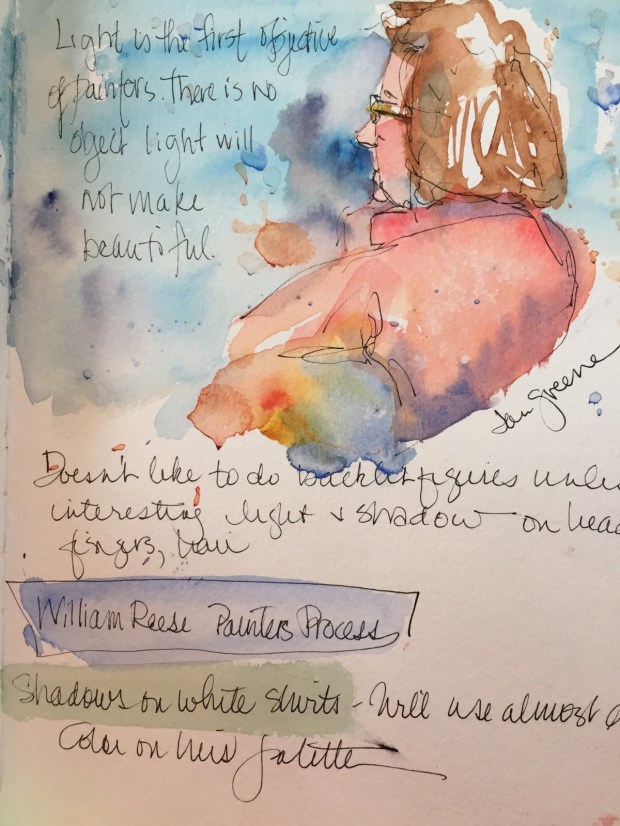 Light is the first objective
of painters. There is no
object light will
not make
beautiful.
Jan Greene
Doesn't like to do backlit figures unless
interesting light & shadow on head
fingers, hair
William Reese Painters Process
Shadows on white shirts - He'll use almost
Color on his palette